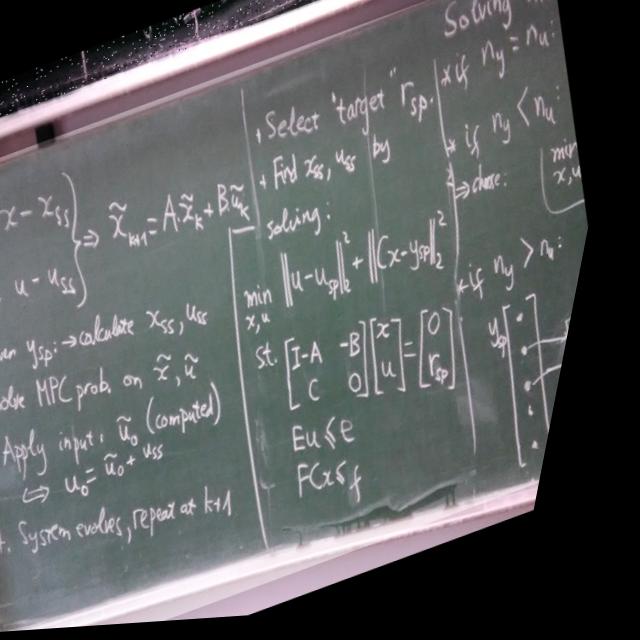 x - x_ss
u - u_ss } ⇒ x̃_k+1 = A x̃_k + B ũ_k
y_sp: → calculate x_ss, u_ss
MPC prob. on x̃, ũ
Apply input: ũ_0 (computed)
⇔ u_0 = ũ_0 + u_ss
System evolves, repeat at k+1
Select "target" r_sp.
Find x_ss, u_ss by
solving:
min x,u ||u - u_sp||_2^2 + ||Cx - y_sp||_2^2
st. [I-A -B; C 0] [x; u] = [0; r_sp]
Eu ≤ e
FCx ≤ f
Solving
* if n_y = n_u:
* if n_y < n_u:
⇒ min x,u
* if n_y > n_u:
y_sp